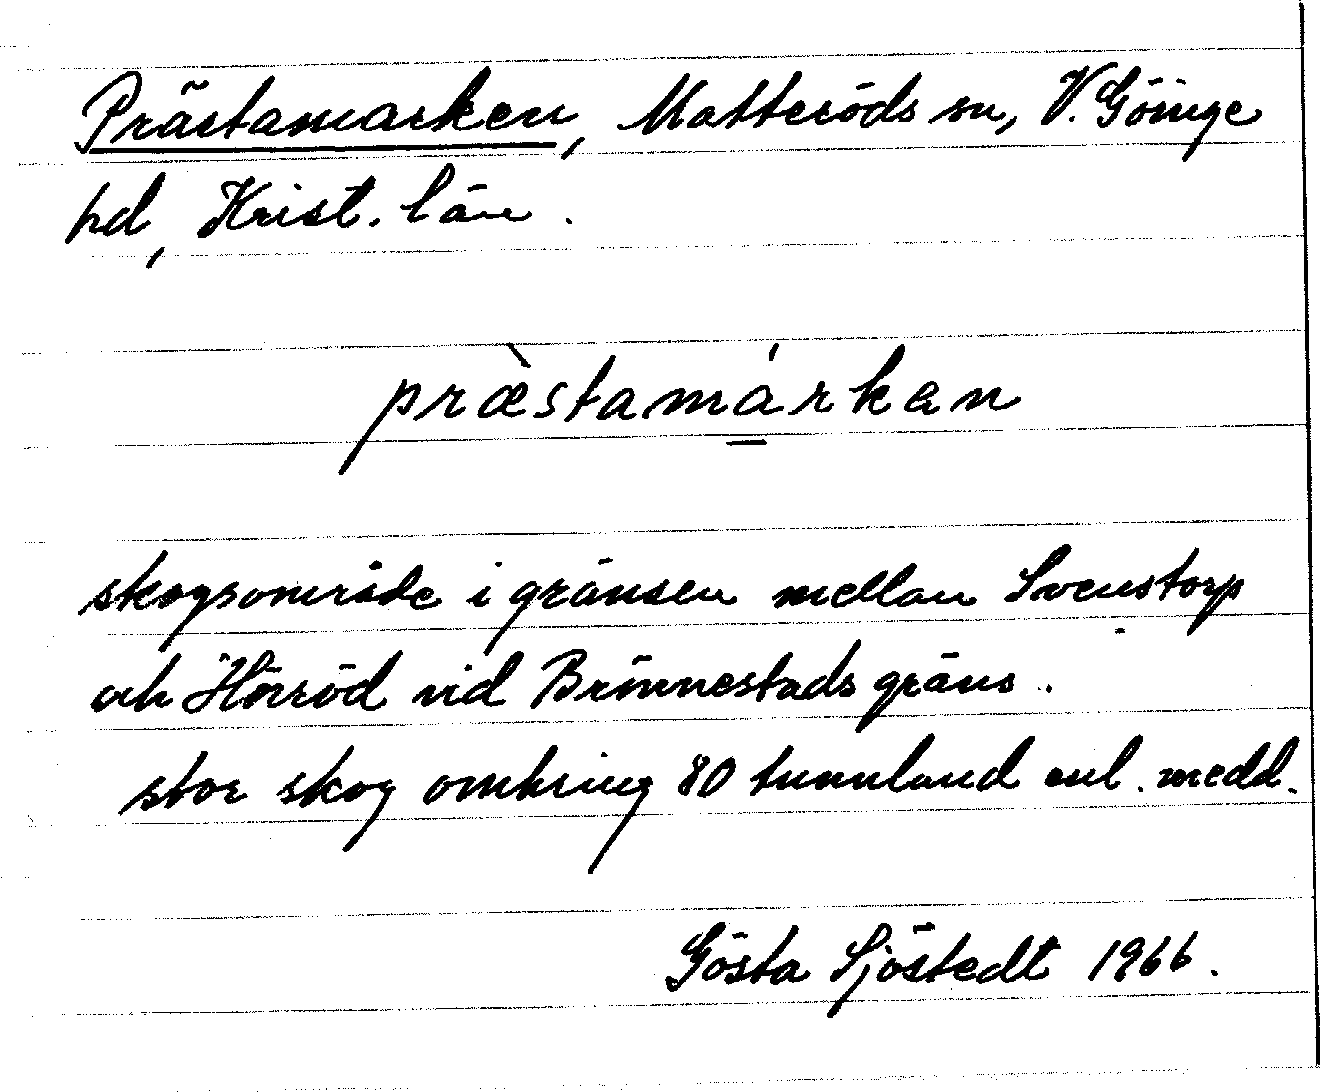 Prästamarken, Matteröds sn, V. Göinge
hd, Krist. län.
præ̀stamárkan
skogsområde i gränsen mellan Svenstorp
och Hörröd vid Brönnestads gräns.
stor skog omkring 80 tunnland enl. medd.
Gösta Sjöstedt 1966.